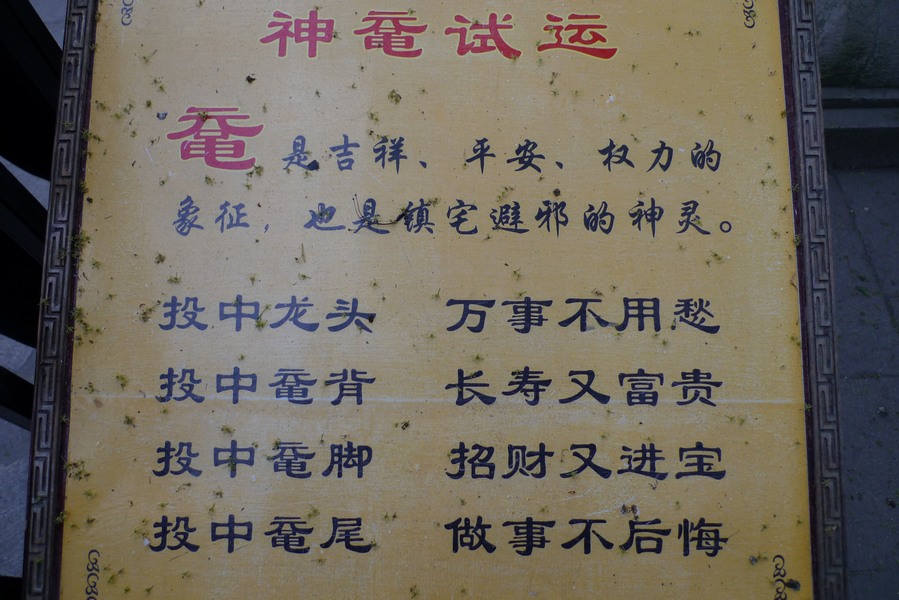 神鼋试运
鼋是吉祥、平安、权力的
象征，也是镇宅避邪的神灵。
投中龙头 万事不用愁
投中鼋背 长寿又富贵
投中鼋脚 招财又进宝
投中鼋尾 做事不后悔